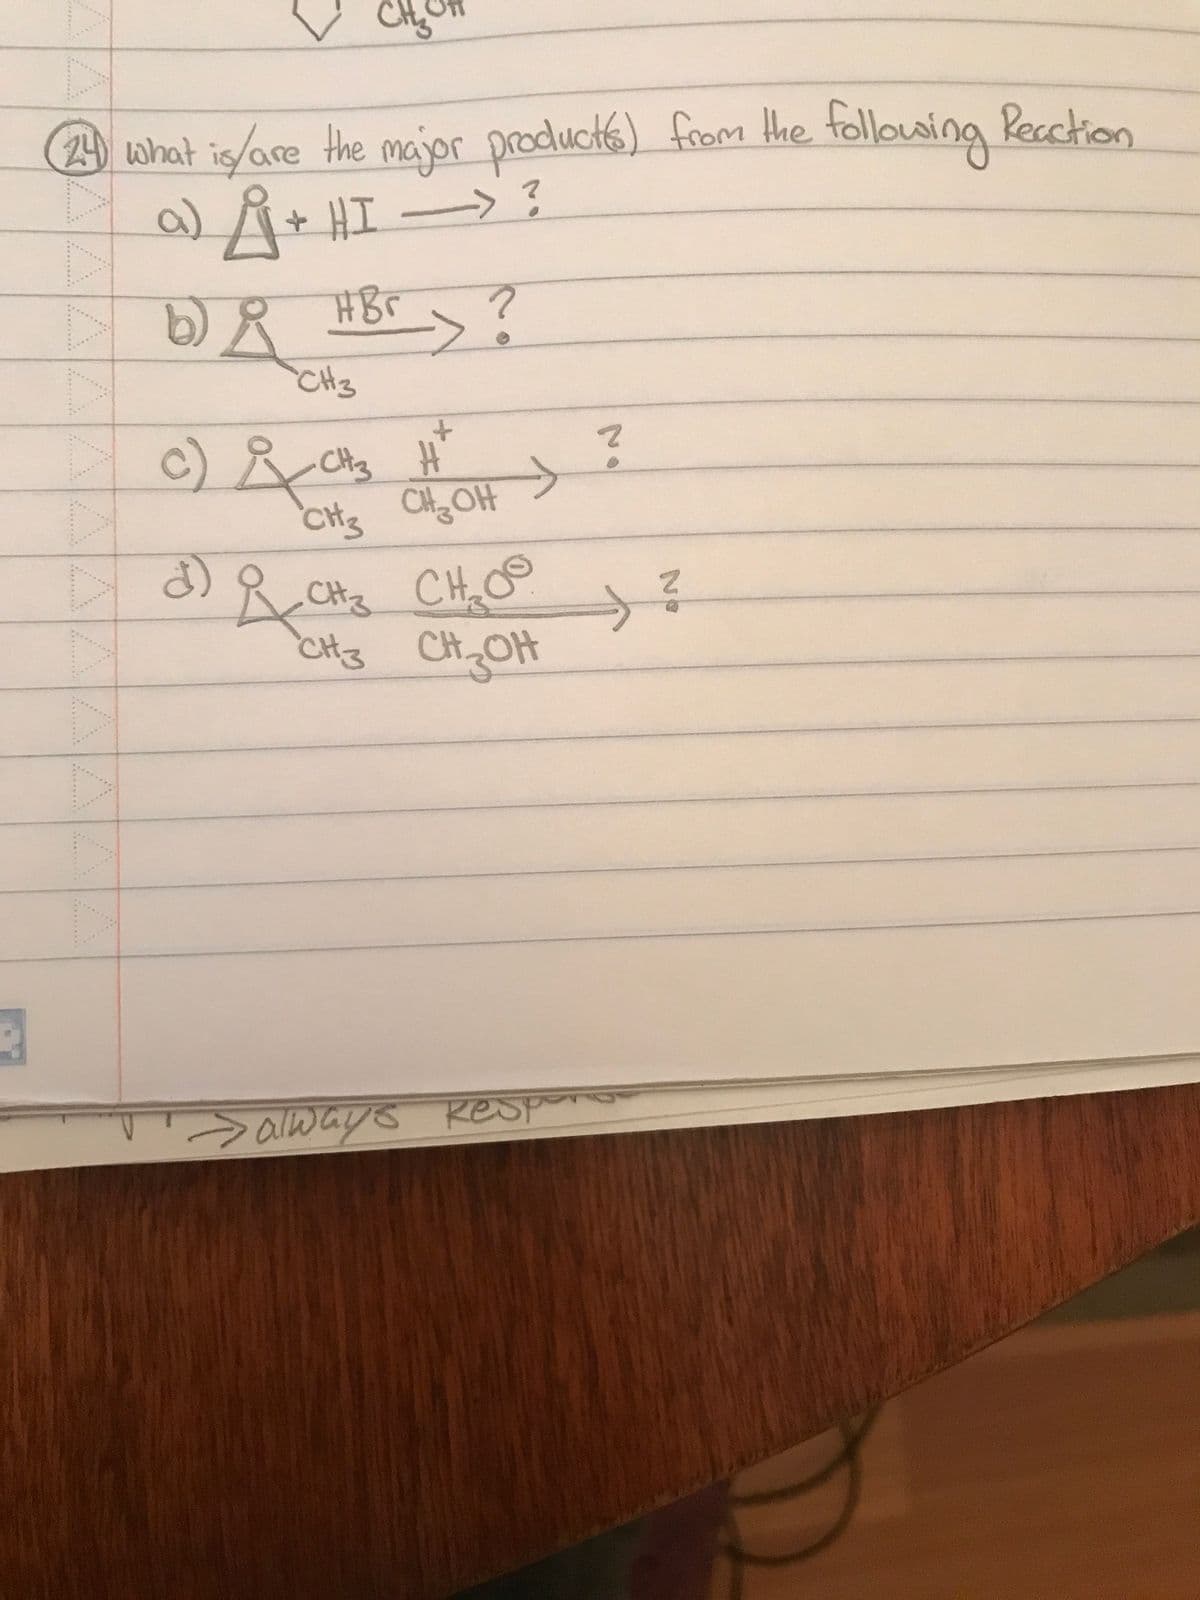 CH3OH
24 what is/are the major product(s) from the following Reaction
a) O + HI → ?
b) O HBr → ?
CH3
c) O CH3 H+ → ?
CH3 CH3OH
d) O CH3 CH3O⊖ → ?
CH3 CH3OH
→ always